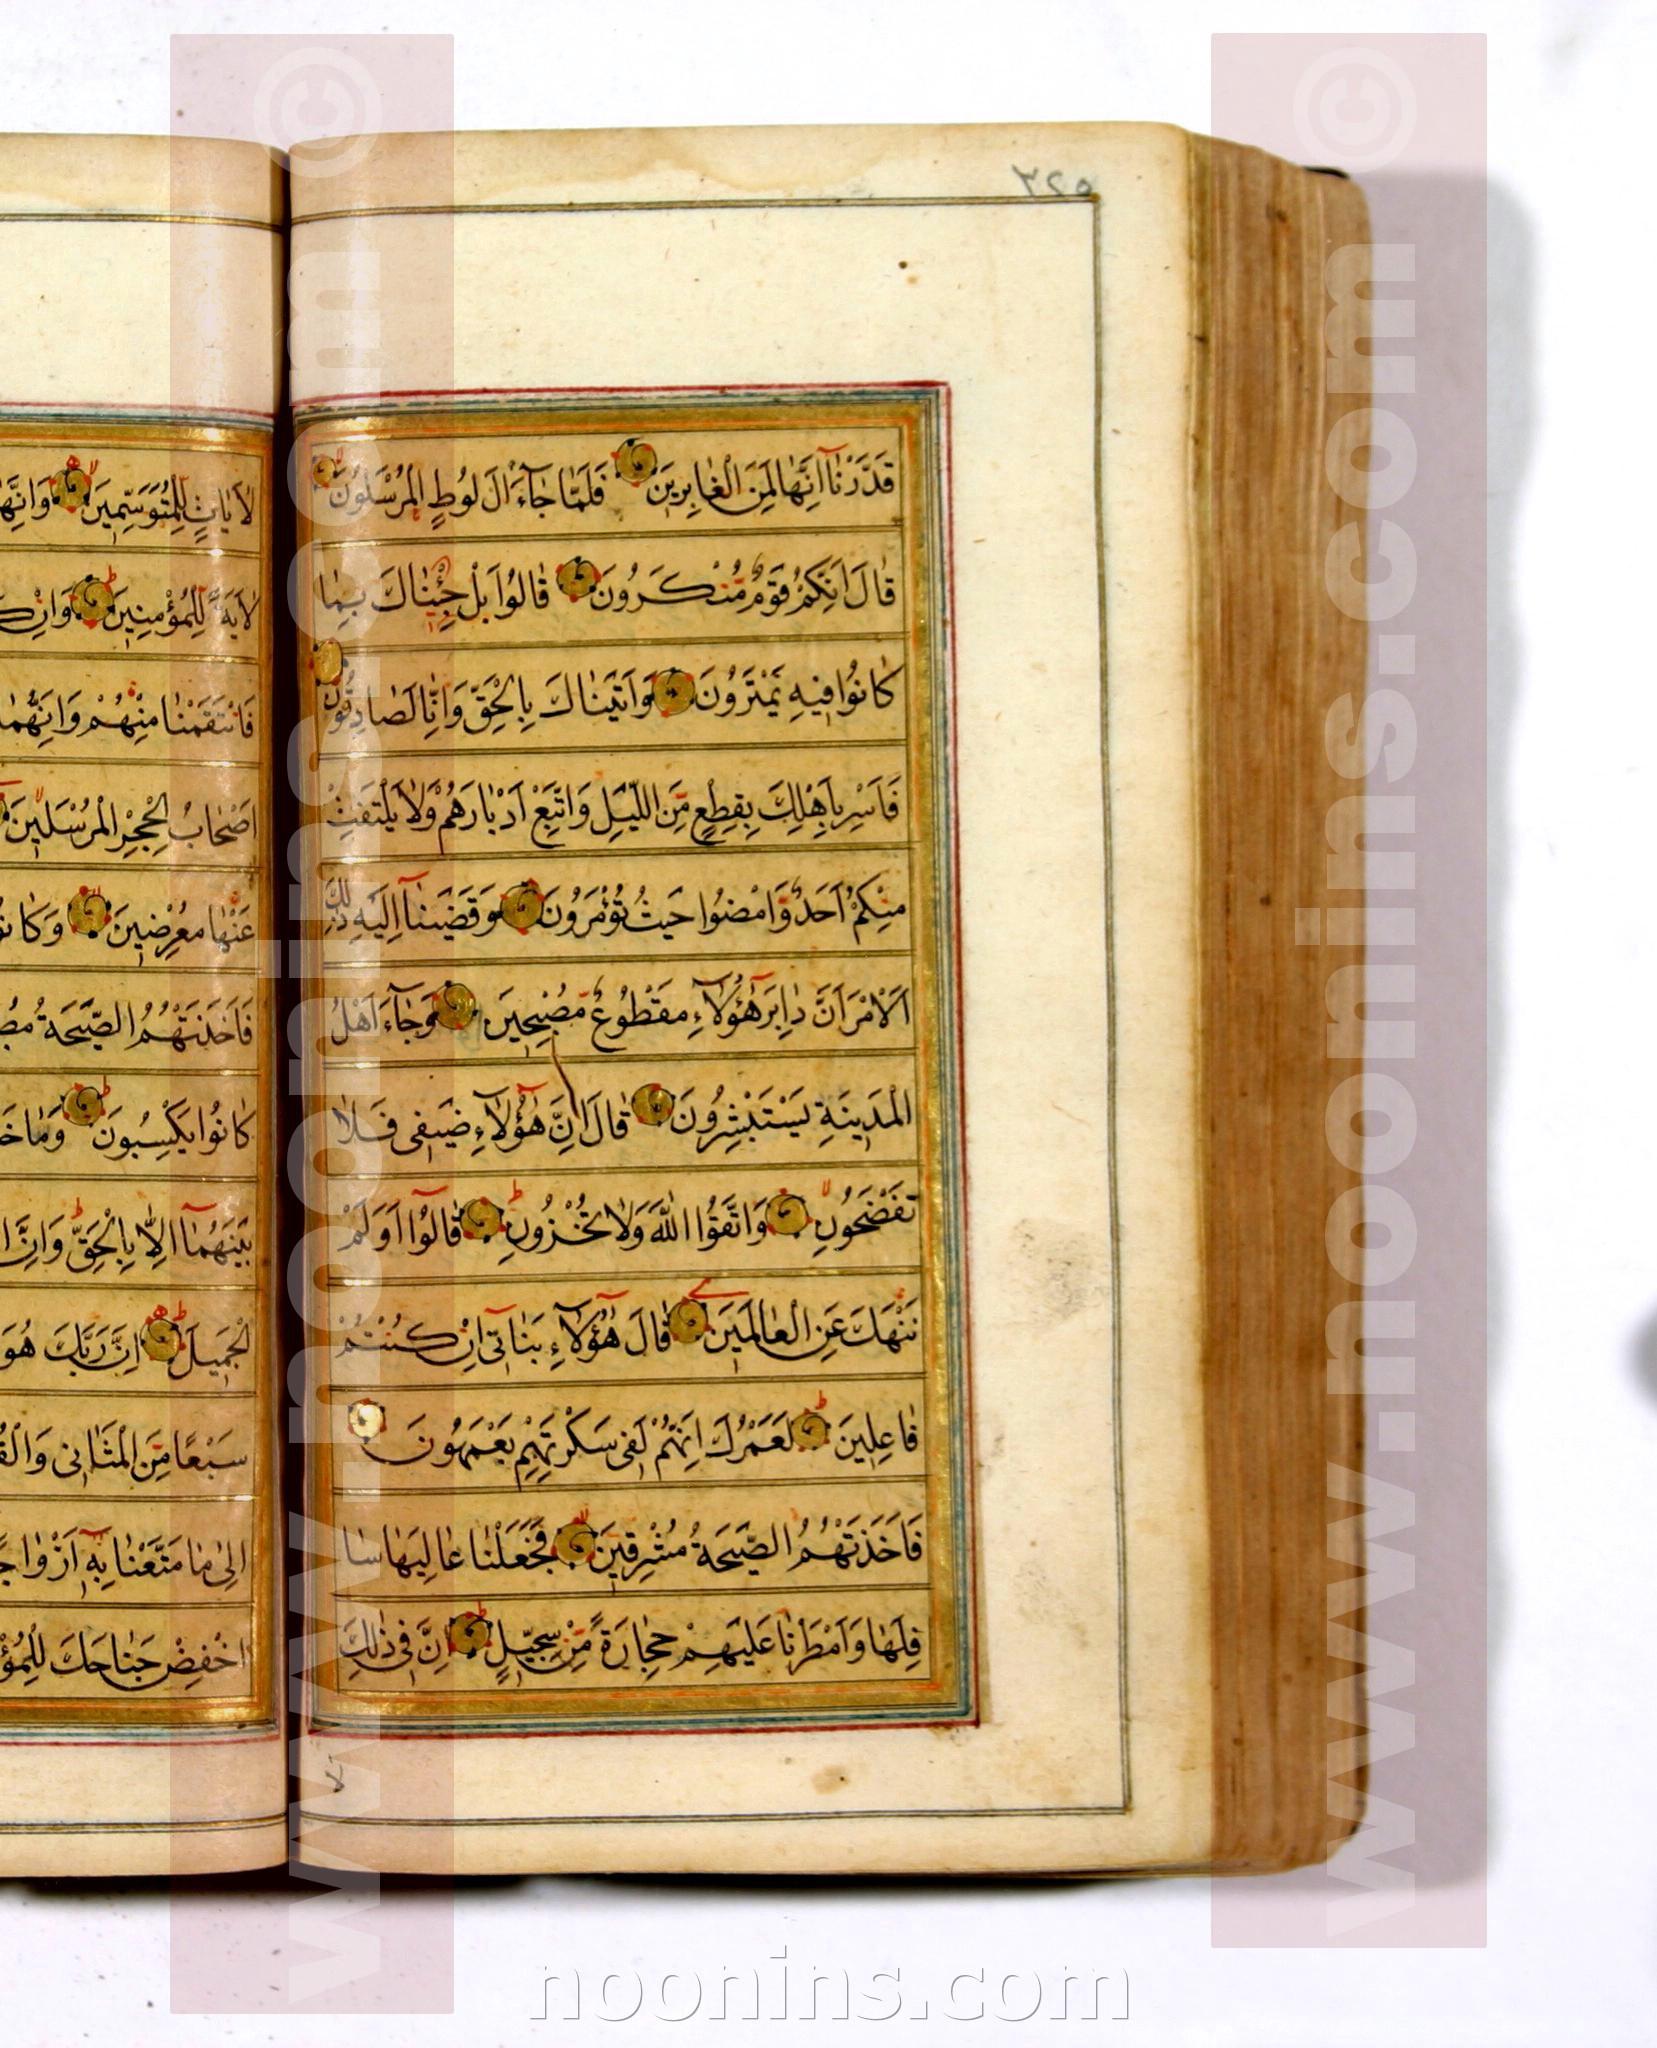 ٣٢٥
قَدَّرْنَآ اِنَّهَا لَمِنَ الْغَابِرِينَ فَلَمَّا جَآءَ اٰلَ لُوطٍ الْمُرْسَلُونَ
قَالَ اِنَّكُمْ قَوْمٌ مُنْكَرُونَ قَالُوا بَلْ جِئْنَاكَ بِمَا
كَانُوا فِيهِ يَمْتَرُونَ وَاَتَيْنَاكَ بِالْحَقِّ وَاِنَّا لَصَادِقُونَ
فَاَسْرِ بِاَهْلِكَ بِقِطْعٍ مِنَ اللَّيْلِ وَاتَّبِعْ اَدْبَارَهُمْ وَلَا يَلْتَفِتْ
مِنْكُمْ اَحَدٌ وَامْضُوا حَيْثُ تُؤْمَرُونَ وَقَضَيْنَآ اِلَيْهِ ذٰلِكَ
الْاَمْرَ اَنَّ دَابِرَ هٰٓؤُلَآءِ مَقْطُوعٌ مُصْبِحِينَ وَجَآءَ اَهْلُ
الْمَدِينَةِ يَسْتَبْشِرُونَ قَالَ اِنَّ هٰٓؤُلَآءِ ضَيْفِى فَلَا
تَفْضَحُونِ وَاتَّقُوا اللّٰهَ وَلَا تُخْزُونِ قَالُوٓا اَوَلَمْ
نَنْهَكَ عَنِ الْعَالَمِينَ قَالَ هٰٓؤُلَآءِ بَنَاتِىٓ اِنْ كُنْتُمْ
فَاعِلِينَ لَعَمْرُكَ اِنَّهُمْ لَفِى سَكْرَتِهِمْ يَعْمَهُونَ
فَاَخَذَتْهُمُ الصَّيْحَةُ مُشْرِقِينَ فَجَعَلْنَا عَالِيَهَا سَا
فِلَهَا وَاَمْطَرْنَا عَلَيْهِمْ حِجَارَةً مِنْ سِجِّيلٍ اِنَّ فِى ذٰلِكَ
لَا
لَاٰيَاتٍ لِلْمُتَوَسِّمِينَ وَاِنَّهَا
لَاٰيَةً لِلْمُؤْمِنِينَ وَاِنْ
فَانْتَقَمْنَا مِنْهُمْ وَاِنَّهُمَا
اَصْحَابُ الْحِجْرِ الْمُرْسَلِينَ
عَنْهَا مُعْرِضِينَ وَكَانُوا
فَاَخَذَتْهُمُ الصَّيْحَةُ
كَانُوا يَكْسِبُونَ وَمَا
بَيْنَهُمَآ اِلَّا بِالْحَقِّ وَاِنَّ
الْجَمِيلَ اِنَّ رَبَّكَ هُوَ
سَبْعًا مِنَ الْمَثَانِى وَ
اِلٰى مَا مَتَّعْنَا بِهٖٓ اَزْوَاجًا
اخْفِضْ جَنَاحَكَ
www.noonins.com ©
www.noonins.com ©
noonins.com